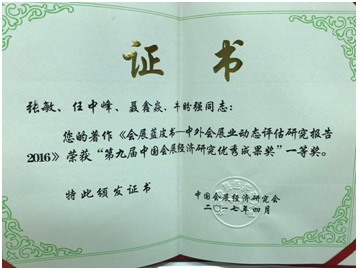 证书
张敏、任中峰、聂鑫焱、牛盼强同志：
您的著作《会展蓝皮书—中外会展业动态评估研究报告
2016》荣获“第九届中国会展经济研究优秀成果奖”一等奖。
特此颁发证书
中国会展经济研究会
二〇一七年四月